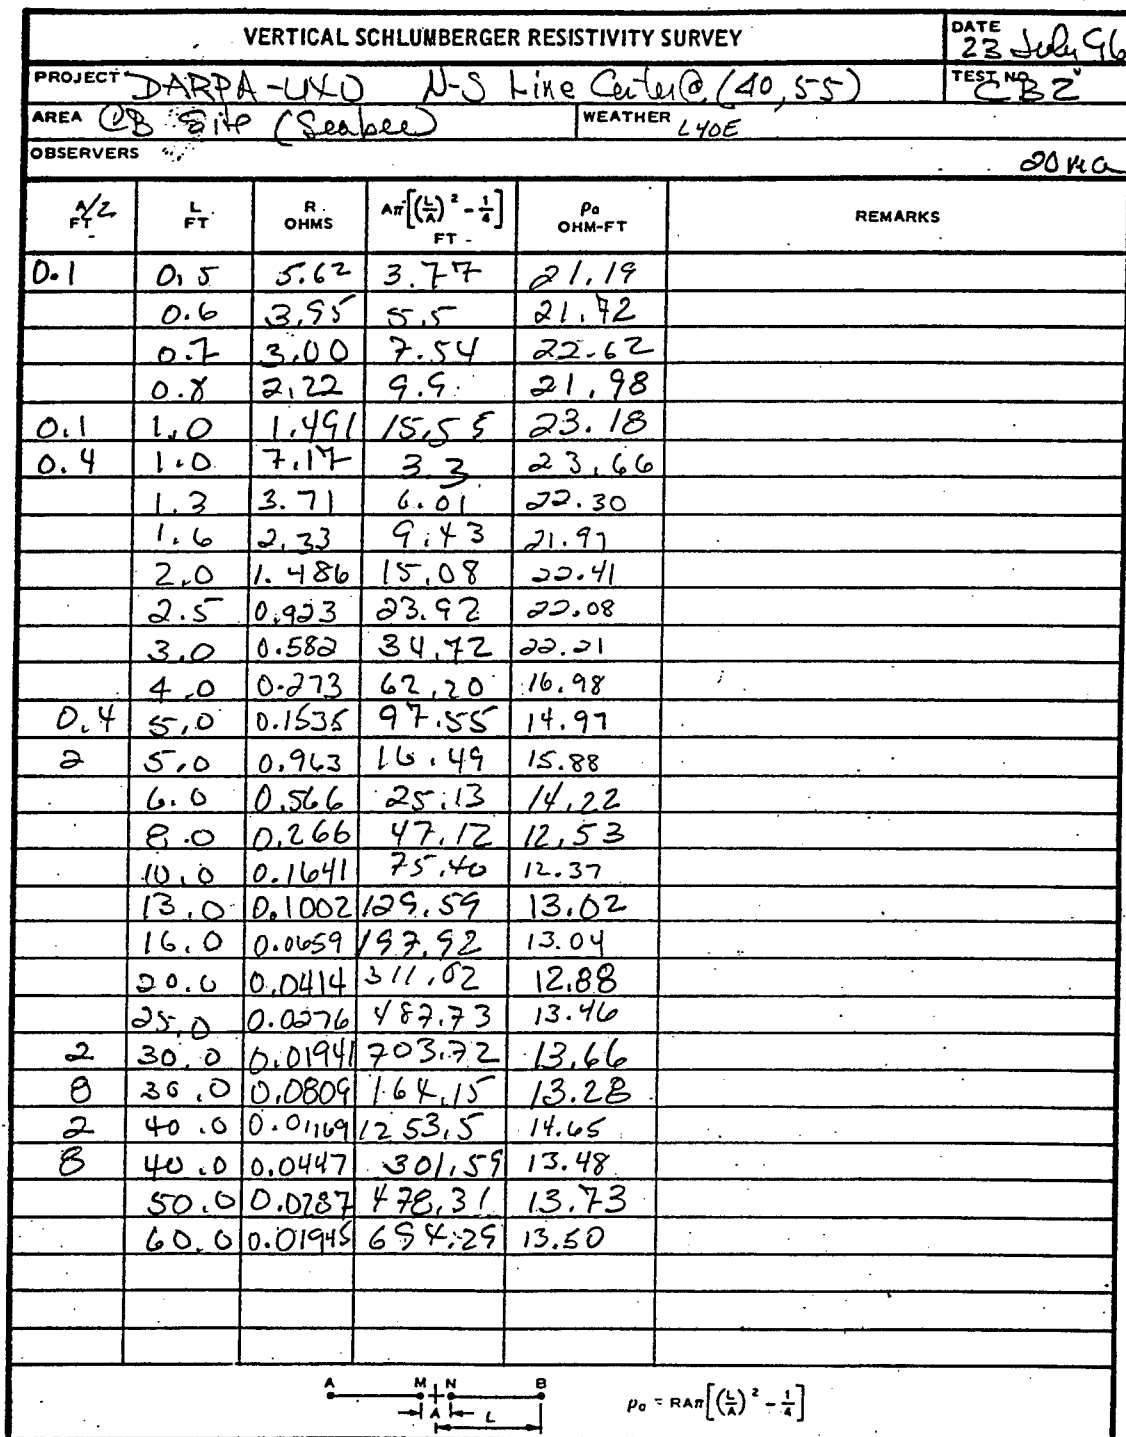 VERTICAL SCHLUMBERGER RESISTIVITY SURVEY
DATE
23 July 96
PROJECT DARPA-UXO N-S Line Center @ (40, 55)
TEST NO. CB2
AREA CB Site (Seabee)
WEATHER L40E
OBSERVERS
20 ma
A/2 FT L FT R OHMS Aπ[(L/A)² - 1/4] FT ρa OHM-FT REMARKS
0.1 0.5 5.62 3.77 21.19
0.6 3.95 5.5 21.72
0.7 3.00 7.54 22.62
0.8 2.22 9.9 21.98
0.1 1.0 1.491 15.55 23.18
0.4 1.0 7.17 3.3 23.66
1.3 3.71 6.01 22.30
1.6 2.33 9.43 21.97
2.0 1.486 15.08 22.41
2.5 0.923 23.92 22.08
3.0 0.582 34.72 22.21
4.0 0.273 62.20 16.98
0.4 5.0 0.1535 97.55 14.97
2 5.0 0.963 16.49 15.88
6.0 0.566 25.13 14.22
8.0 0.266 47.12 12.53
10.0 0.1641 75.40 12.37
13.0 0.1002 129.59 13.02
16.0 0.0659 197.92 13.04
20.0 0.0414 311.02 12.88
25.0 0.0276 487.73 13.46
2 30.0 0.01941 703.72 13.66
8 30.0 0.0809 164.15 13.28
2 40.0 0.01169 1253.5 14.65
8 40.0 0.0447 301.59 13.48
50.0 0.0287 478.31 13.73
60.0 0.01945 694.29 13.50
A M N B
A L
ρa = RAπ[(L/A)² - 1/4]